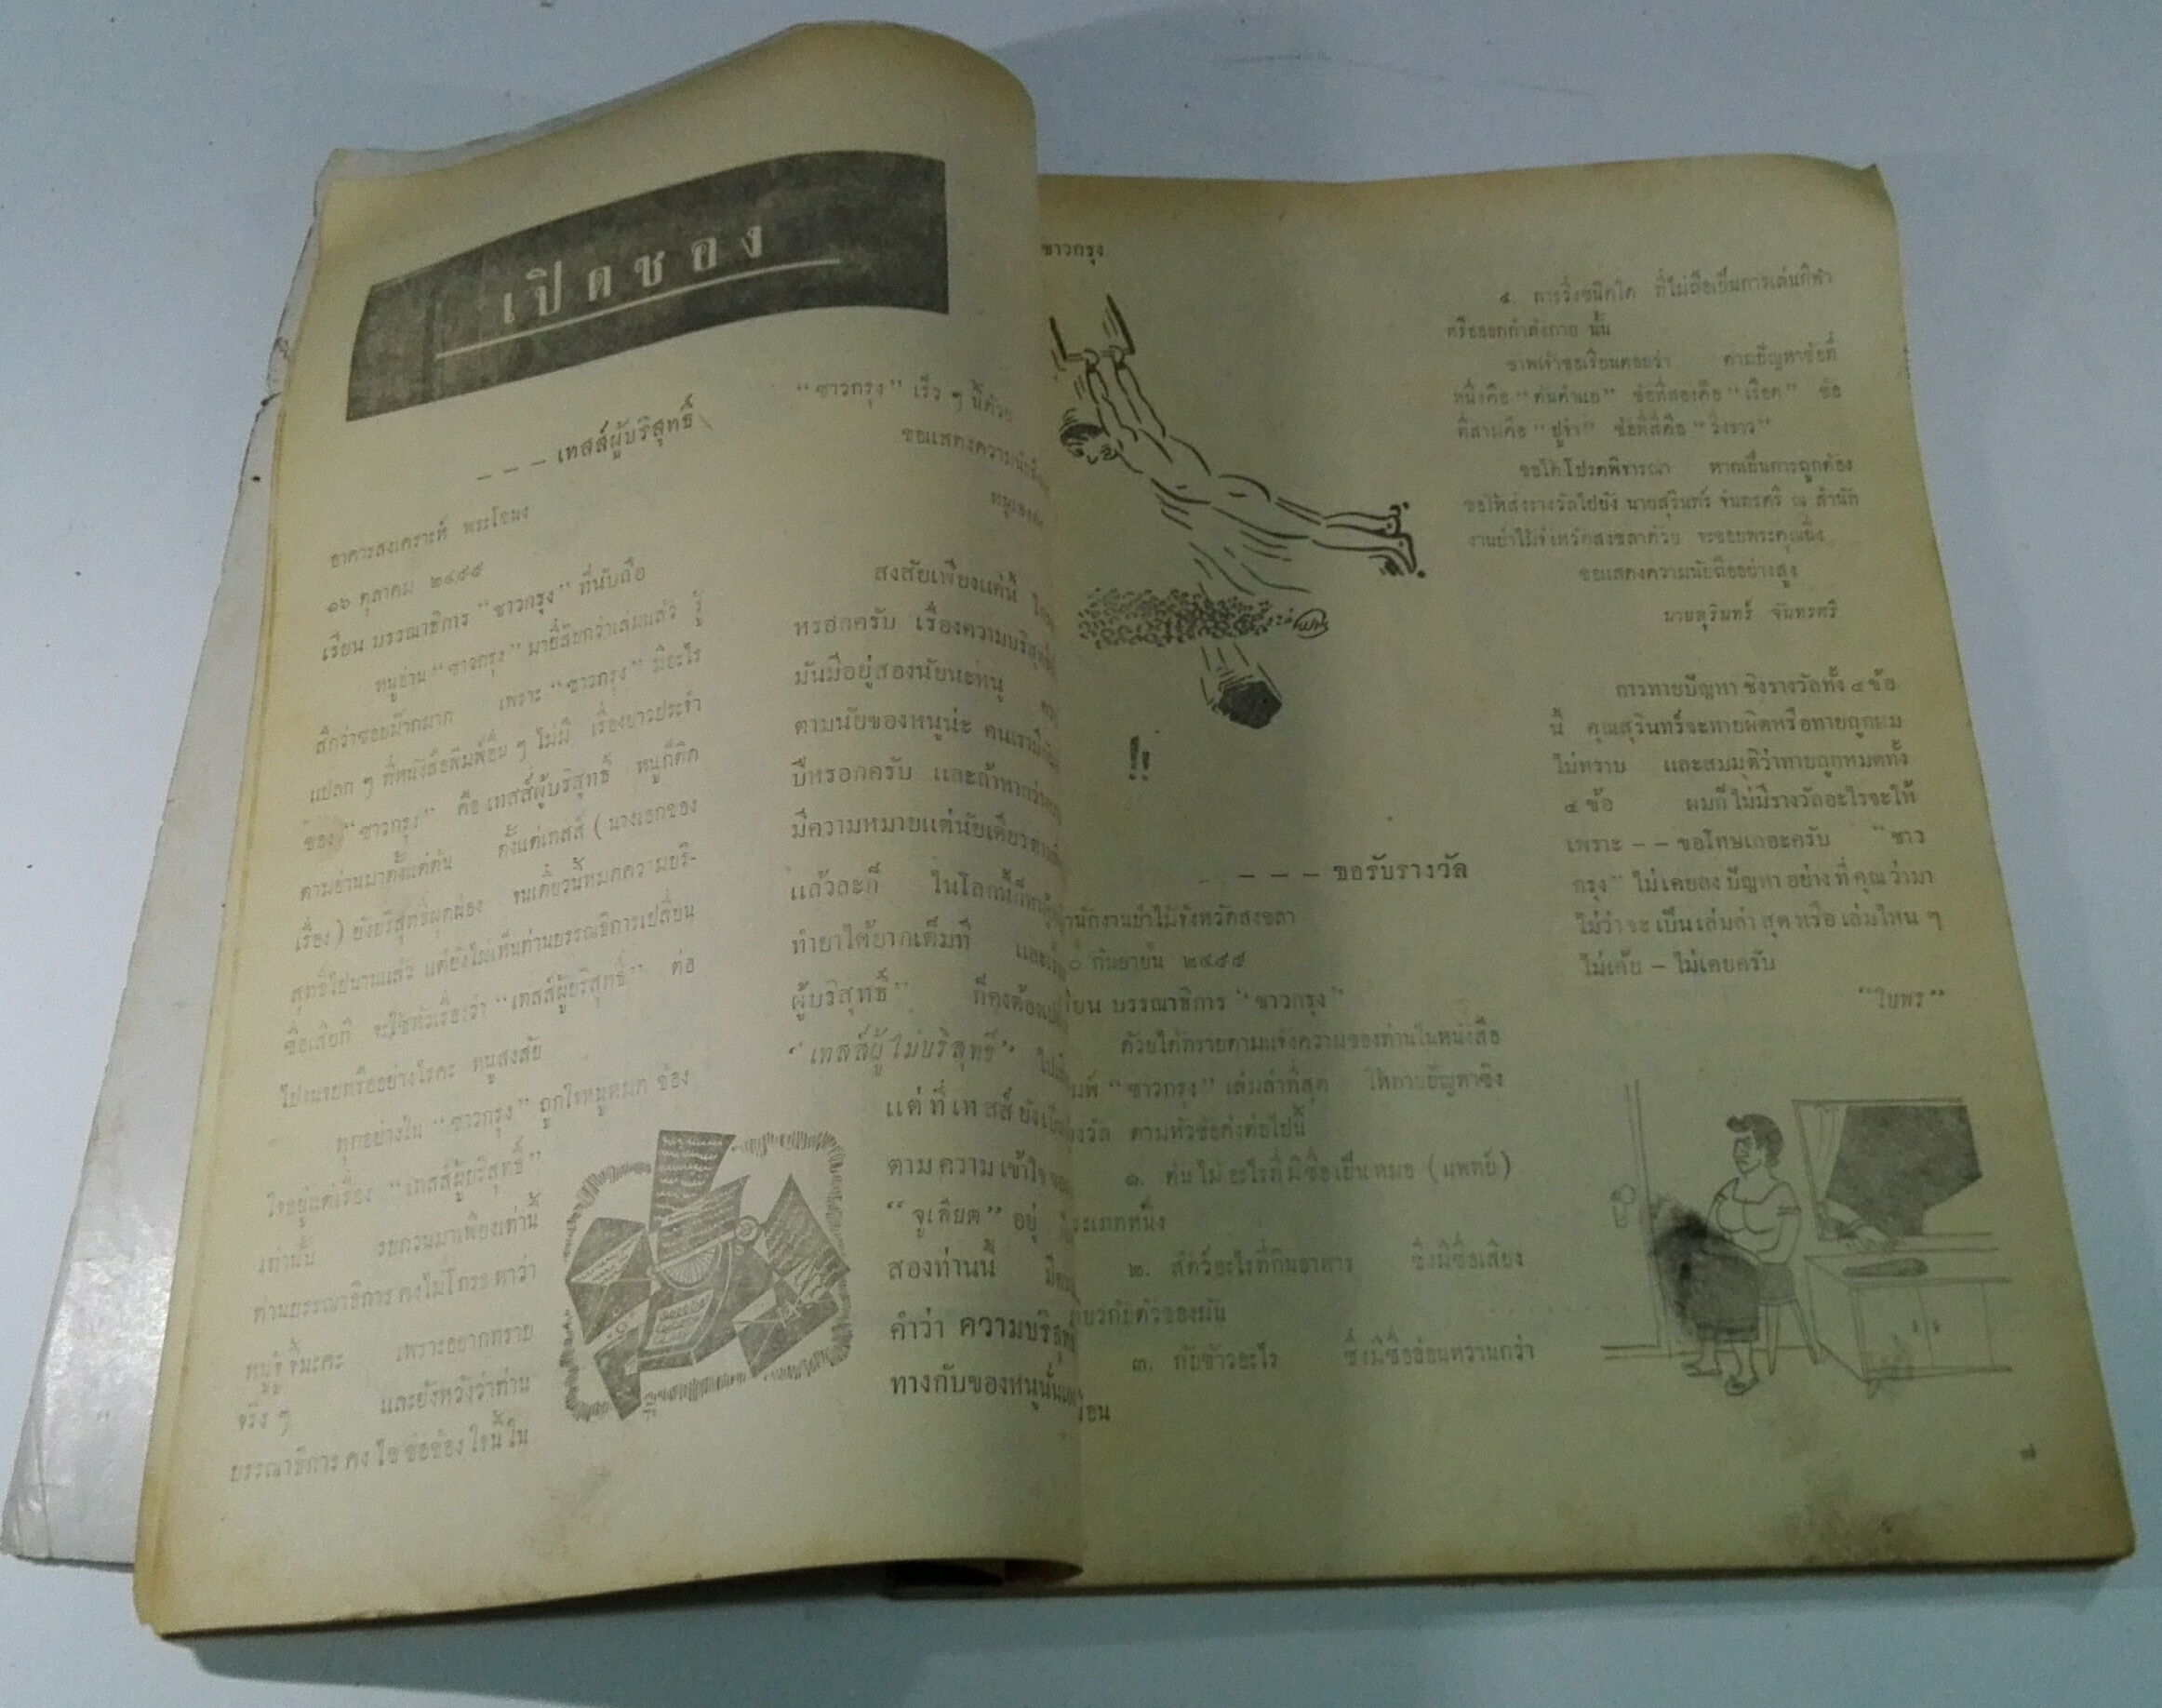 เปิดซอง
– – – เทสส์ผู้บริสุทธิ์
อาคารสงเคราะห์ พระโขนง
๑๖ ตุลาคม ๒๔๙๕
เรียน บรรณาธิการ “ชาวกรุง” ที่นับถือ
หนูอ่าน “ชาวกรุง” มายี่สิบกว่าเล่มแล้ว รู้
สึกว่าชอบม๊ากมาก เพราะ “ชาวกรุง” มีอะไร
แปลก ๆ ที่หนังสือพิมพ์อื่น ๆ ไม่มี เรื่องยาวประจำ
ของ “ชาวกรุง” คือ เทสส์ผู้บริสุทธิ์ หนูก็ติด
ตามอ่านมาตั้งแต่ต้น ตั้งแต่เทสส์ ( นางเอกของ
เรื่อง ) ยังบริสุทธิ์ผุดผ่อง จนเดี๋ยวนี้หมดความบริ-
สุทธิ์ไปนานแล้ว แต่ยังไม่เห็นท่านบรรณธิการเปลี่ยน
ชื่อเสียที จะใช้หัวเรื่องว่า “เทสส์ผู้บริสุทธิ์” ต่อ
ไปจนจบหรืออย่างไรคะ หนูสงสัย
ทุกอย่างใน “ชาวกรุง” ถูกใจหนูหมด ข้อง
ใจอยู่แต่เรื่อง “เทสส์ผู้บริสุทธิ์”
เท่านั้น รบกวนมาเพียงเท่านี้
ท่านบรรณาธิการคงไม่โกรธหาว่า
หนูจู้จี้นะคะ เพราะอยากทราบ
จริง ๆ และยังหวังว่าท่าน
บรรณาธิการ คง ไข ข้อข้อง ใจนี้ ใน
“ชาวกรุง” เร็ว ๆ นี้ด้วย
ขอแสดงความนับถือ
สงสัยเพียงแค่นี้
หรอกครับ เรื่องความบริสุทธิ์
มันมีอยู่สองนัยนะหนู
ตามนัยของหนูน่ะ คนเรามี
บีหรอกครับ และถ้าหากว่า
มีความหมายแต่นัยเดียว
แล้วละก็ ในโลกนี้ก็
ทำยาได้ยากเต็มที
ผู้บริสุทธิ์” ก็คงต้อง
“เทสส์ผู้ไม่บริสุทธิ์”
แต่ ที่ เทสส์ ยัง
ตาม ความ เข้าใจ
“จูเลียต” อยู่
สองท่านนี้
คำว่า ความบริสุทธิ์
ทางกับของหนูนั่น
ชาวกรุง
!!
– – – ขอรับรางวัล
สำนักงานป่าไม้จังหวัดสงขลา
กันยายน ๒๔๙๕
เรียน บรรณาธิการ “ชาวกรุง”
ด้วยได้ทราบตามแจ้งความของท่านในหนังสือ
พิมพ์ “ชาวกรุง” เล่มล่าที่สุด ให้ทายปัญหาชิง
รางวัล ตามหัวข้อดังต่อไปนี้
๑. ต้น ไม้ อะไรที่ มี ชื่อ เป็น หมอ ( แพทย์ )
ประเภทหนึ่ง
๒. สัตว์อะไรที่กินอาหาร ซึ่งมีชื่อเสียง
เดียวกับตัวของมัน
๓. กับข้าวอะไร ซึ่งมีชื่ออ่อนหวานกว่า
๔. การวิ่งชนิดใด ที่ไม่ถือเป็นการเล่นกีฬา
หรือออกกำลังกาย นั้น
ข้าพเจ้าขอเรียนตอบว่า ตามปัญหาข้อที่
หนึ่งคือ “ต้นตำแย” ข้อที่สองคือ “เรือด” ข้อ
ที่สามคือ “ปูจ๋า” ข้อที่สี่คือ “วิ่งราว”
ขอได้โปรดพิจารณา หากเป็นการถูกต้อง
ขอให้ส่งรางวัลไปยัง นายสุรินทร์ จันทรศรี ณ สำนัก
งานป่าไม้จังหวัดสงขลาด้วย จะขอบพระคุณยิ่ง
ขอแสดงความนับถืออย่างสูง
นายสุรินทร์ จันทรศรี
การทายปัญหา ชิงรางวัลทั้ง ๔ ข้อ
นี้ คุณสุรินทร์จะทายผิดหรือทายถูกผม
ไม่ทราบ และสมมุติว่าทายถูกหมดทั้ง
๔ ข้อ ผมก็ ไม่มีรางวัลอะไรจะให้
เพราะ – – ขอโทษเถอะครับ “ชาว
กรุง” ไม่ เคยลง ปัญหา อย่าง ที่ คุณ ว่ามา
ไม่ว่า จะ เป็น เล่มล่า สุด หรือ เล่มไหน ๆ
ไม่เค้ย – ไม่เคยครับ
“ใบพร”
๗